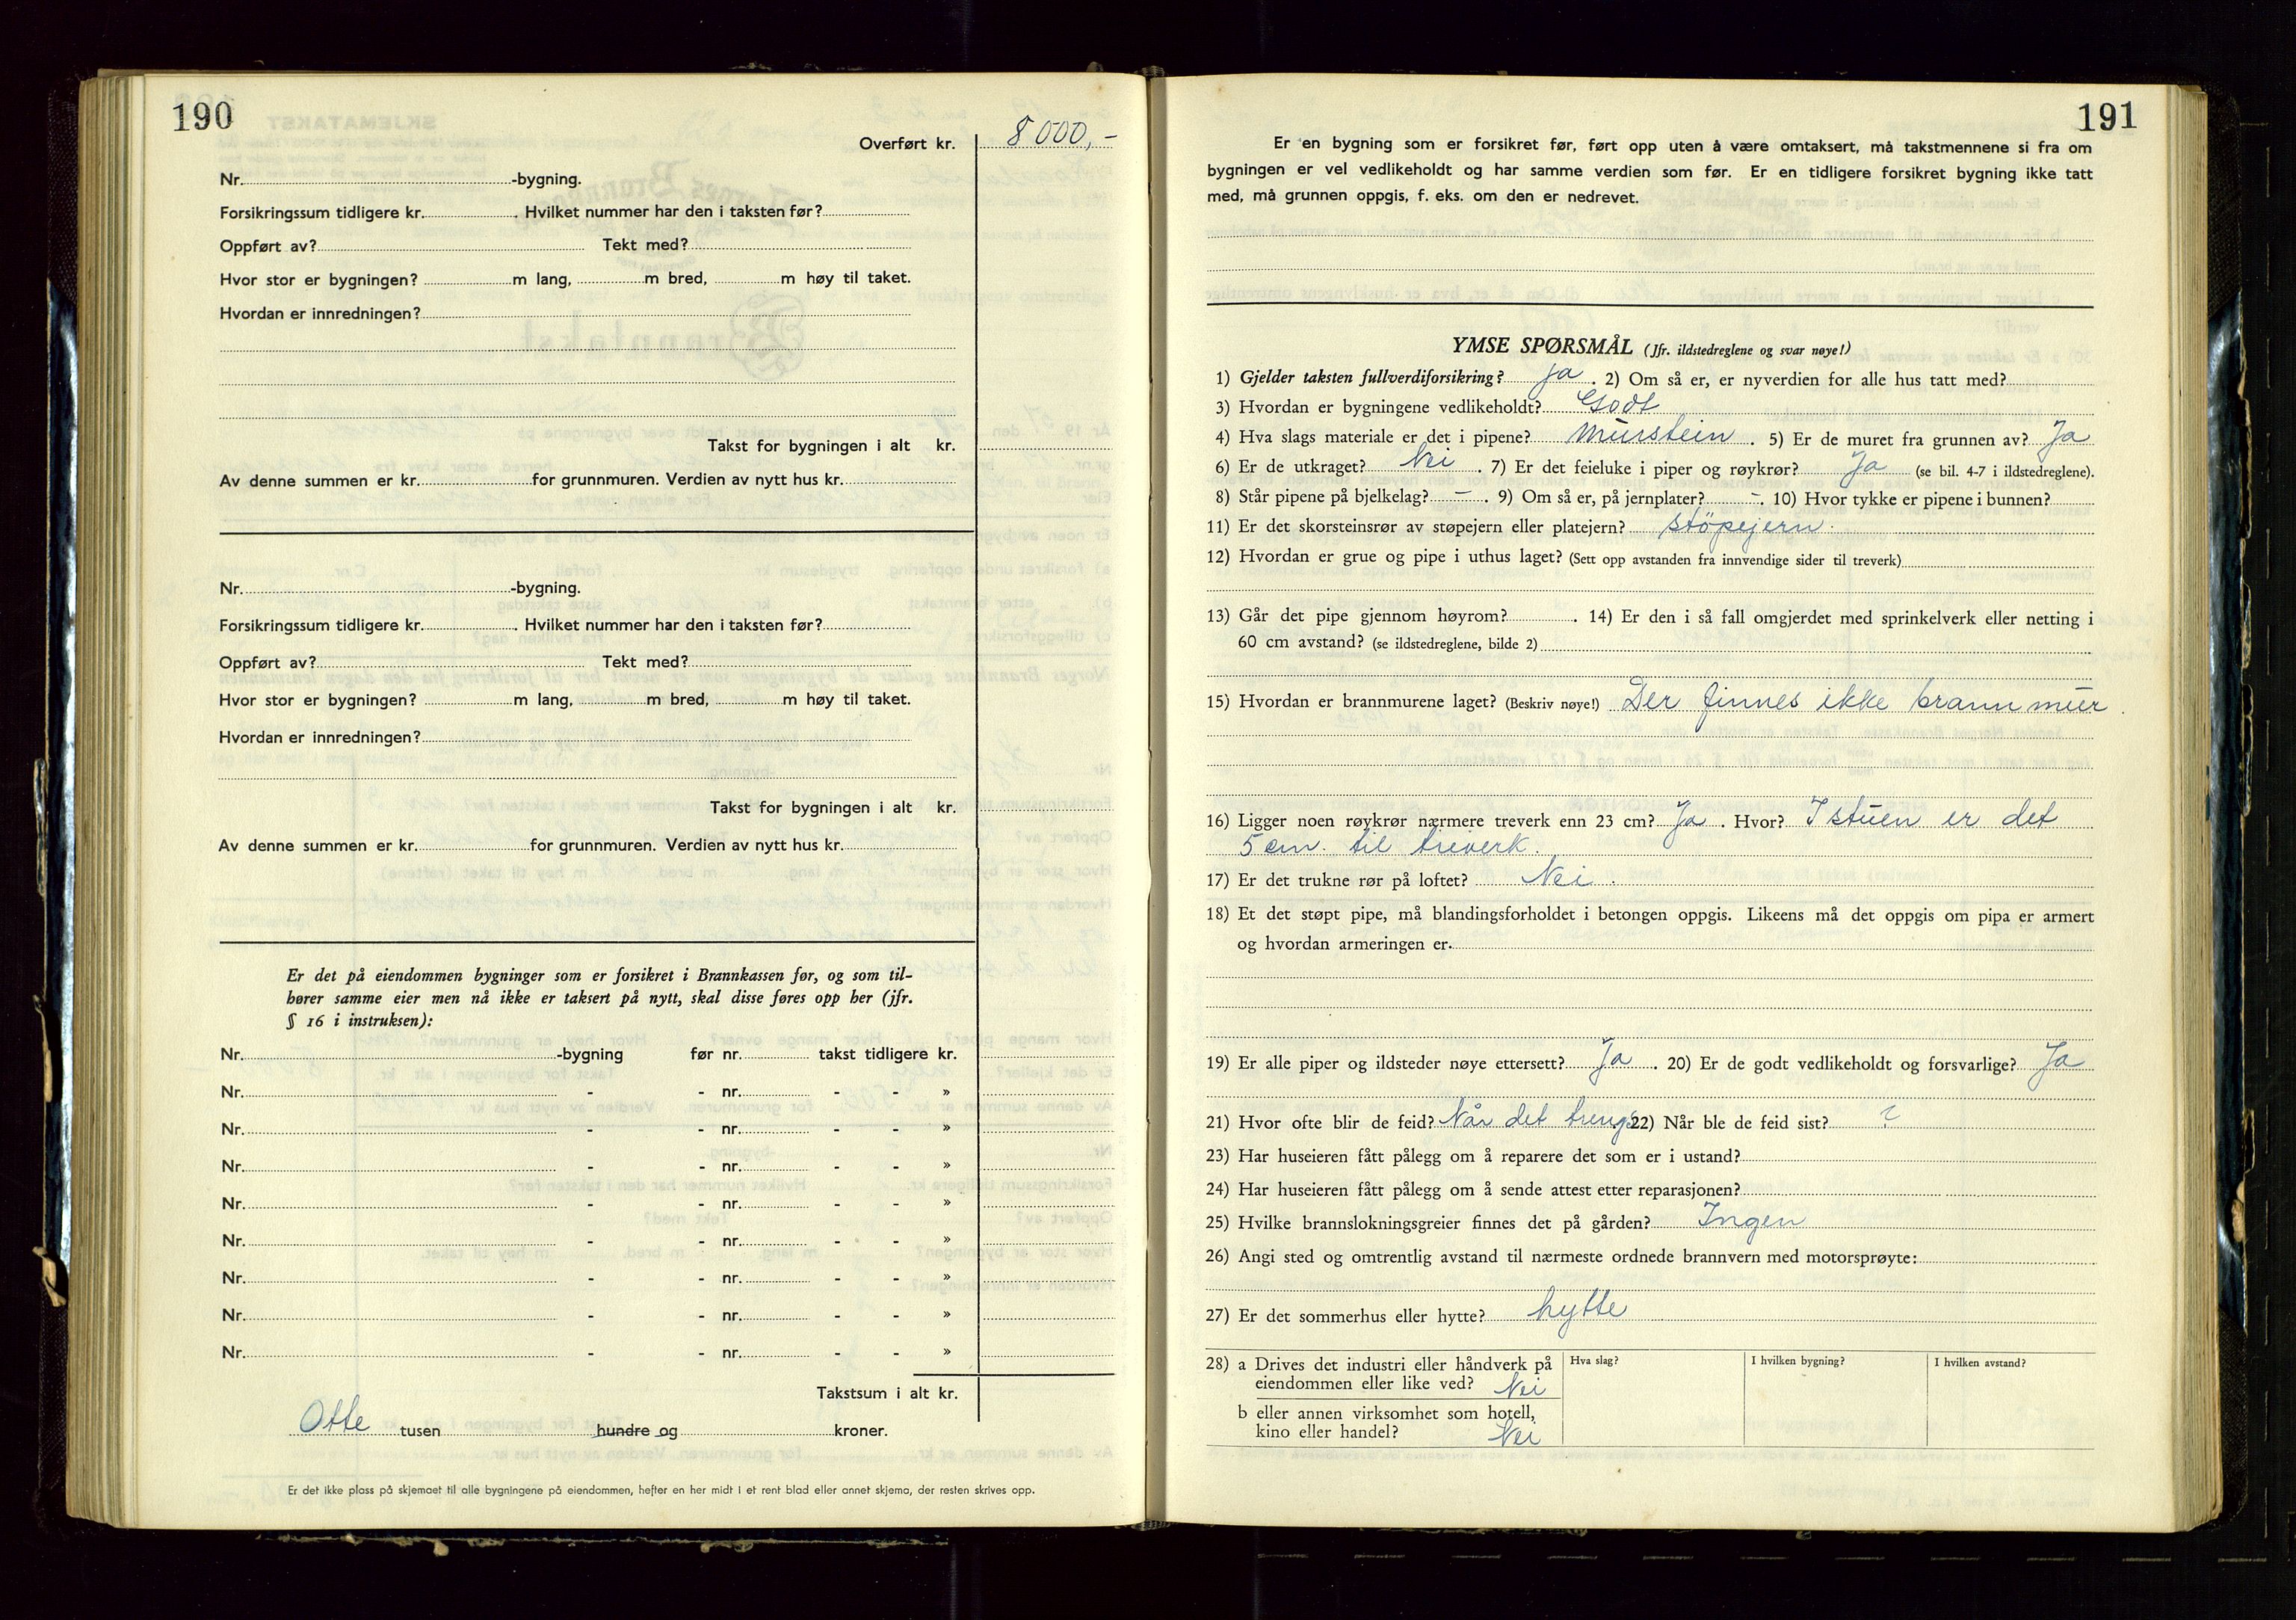 190
Overført kr. 8 000,-
Nr. -bygning.
Forsikringssum tidligere kr. . Hvilket nummer har den i taksten før?
Oppført av? Tekt med?
Hvor stor er bygningen? m lang, m bred, m høy til taket.
Hvordan er innredningen?
Takst for bygningen i alt kr.
Av denne summen er kr. for grunnmuren. Verdien av nytt hus kr.
Nr. -bygning.
Forsikringssum tidligere kr. . Hvilket nummer har den i taksten før?
Oppført av? Tekt med?
Hvor stor er bygningen? m lang, m bred, m høy til taket.
Hvordan er innredningen?
Takst for bygningen i alt kr.
Av denne summen er kr. for grunnmuren. Verdien av nytt hus kr.
Er det på eiendommen bygninger som er forsikret i Brannkassen før, og som til-
hører samme eier men nå ikke er taksert på nytt, skal disse føres opp her (jfr.
§ 16 i instruksen):
Nr. -bygning før nr. takst tidligere kr.
Nr. - - nr. - - »
Nr. - - nr. - - »
Nr. - - nr. - - »
Nr. - - nr. - - »
Nr. - - nr. - - »
Nr. - - nr. - - »
Nr. - - nr. - - »
Nr. - - nr. - - »
Takstsum i alt kr.
Otte tusen hundre og kroner.
Er det ikke plass på skjemaet til alle bygningene på eiendommen, hefter en her midt i et rent blad eller annet skjema, der resten skrives opp.
191
Er en bygning som er forsikret før, ført opp uten å være omtaksert, må takstmennene si fra om
bygningen er vel vedlikeholdt og har samme verdien som før. Er en tidligere forsikret bygning ikke tatt
med, må grunnen oppgis, f. eks. om den er nedrevet.
YMSE SPØRSMÅL (Jfr. ildstedreglene og svar nøye!)
1) Gjelder taksten fullverdiforsikring? Ja . 2) Om så er, er nyverdien for alle hus tatt med?
3) Hvordan er bygningene vedlikeholdt? Godt
4) Hva slags materiale er det i pipene? Murstein . 5) Er de muret fra grunnen av? Ja
6) Er de utkraget? Nei . 7) Er det feieluke i piper og røykrør? Ja (se bil. 4-7 i ildstedreglene).
8) Står pipene på bjelkelag? - . 9) Om så er, på jernplater? - . 10) Hvor tykke er pipene i bunnen?
11) Er det skorsteinsrør av støpejern eller platejern? støpejern.
12) Hvordan er grue og pipe i uthus laget? (Sett opp avstanden fra innvendige sider til treverk)
13) Går det pipe gjennom høyrom? . 14) Er den i så fall omgjerdet med sprinkelverk eller netting i
60 cm avstand? (se ildstedreglene, bilde 2)
15) Hvordan er brannmurene laget? (Beskriv nøye!) Der finnes ikke brannmur.
16) Ligger noen røykrør nærmere treverk enn 23 cm? Ja . Hvor? I stuen er det
5 cm. til treverk.
17) Er det trukne rør på loftet? Nei.
18) Et det støpt pipe, må blandingsforholdet i betongen oppgis. Likeens må det oppgis om pipa er armert
og hvordan armeringen er.
19) Er alle piper og ildsteder nøye ettersett? Ja . 20) Er de godt vedlikeholdt og forsvarlige? Ja
21) Hvor ofte blir de feid? Når det trengs 22) Når ble de feid sist? ?
23) Har huseieren fått pålegg om å reparere det som er i ustand?
24) Har huseieren fått pålegg om å sende attest etter reparasjonen?
25) Hvilke brannslokningsgreier finnes det på gården? Ingen
26) Angi sted og omtrentlig avstand til nærmeste ordnede brannvern med motorsprøyte:
27) Er det sommerhus eller hytte? hytte
28) a Drives det industri eller håndverk på Hva slag? I hvilken bygning? I hvilken avstand?
eiendommen eller like ved? Nei
b eller annen virksomhet som hotell,
kino eller handel? Nei